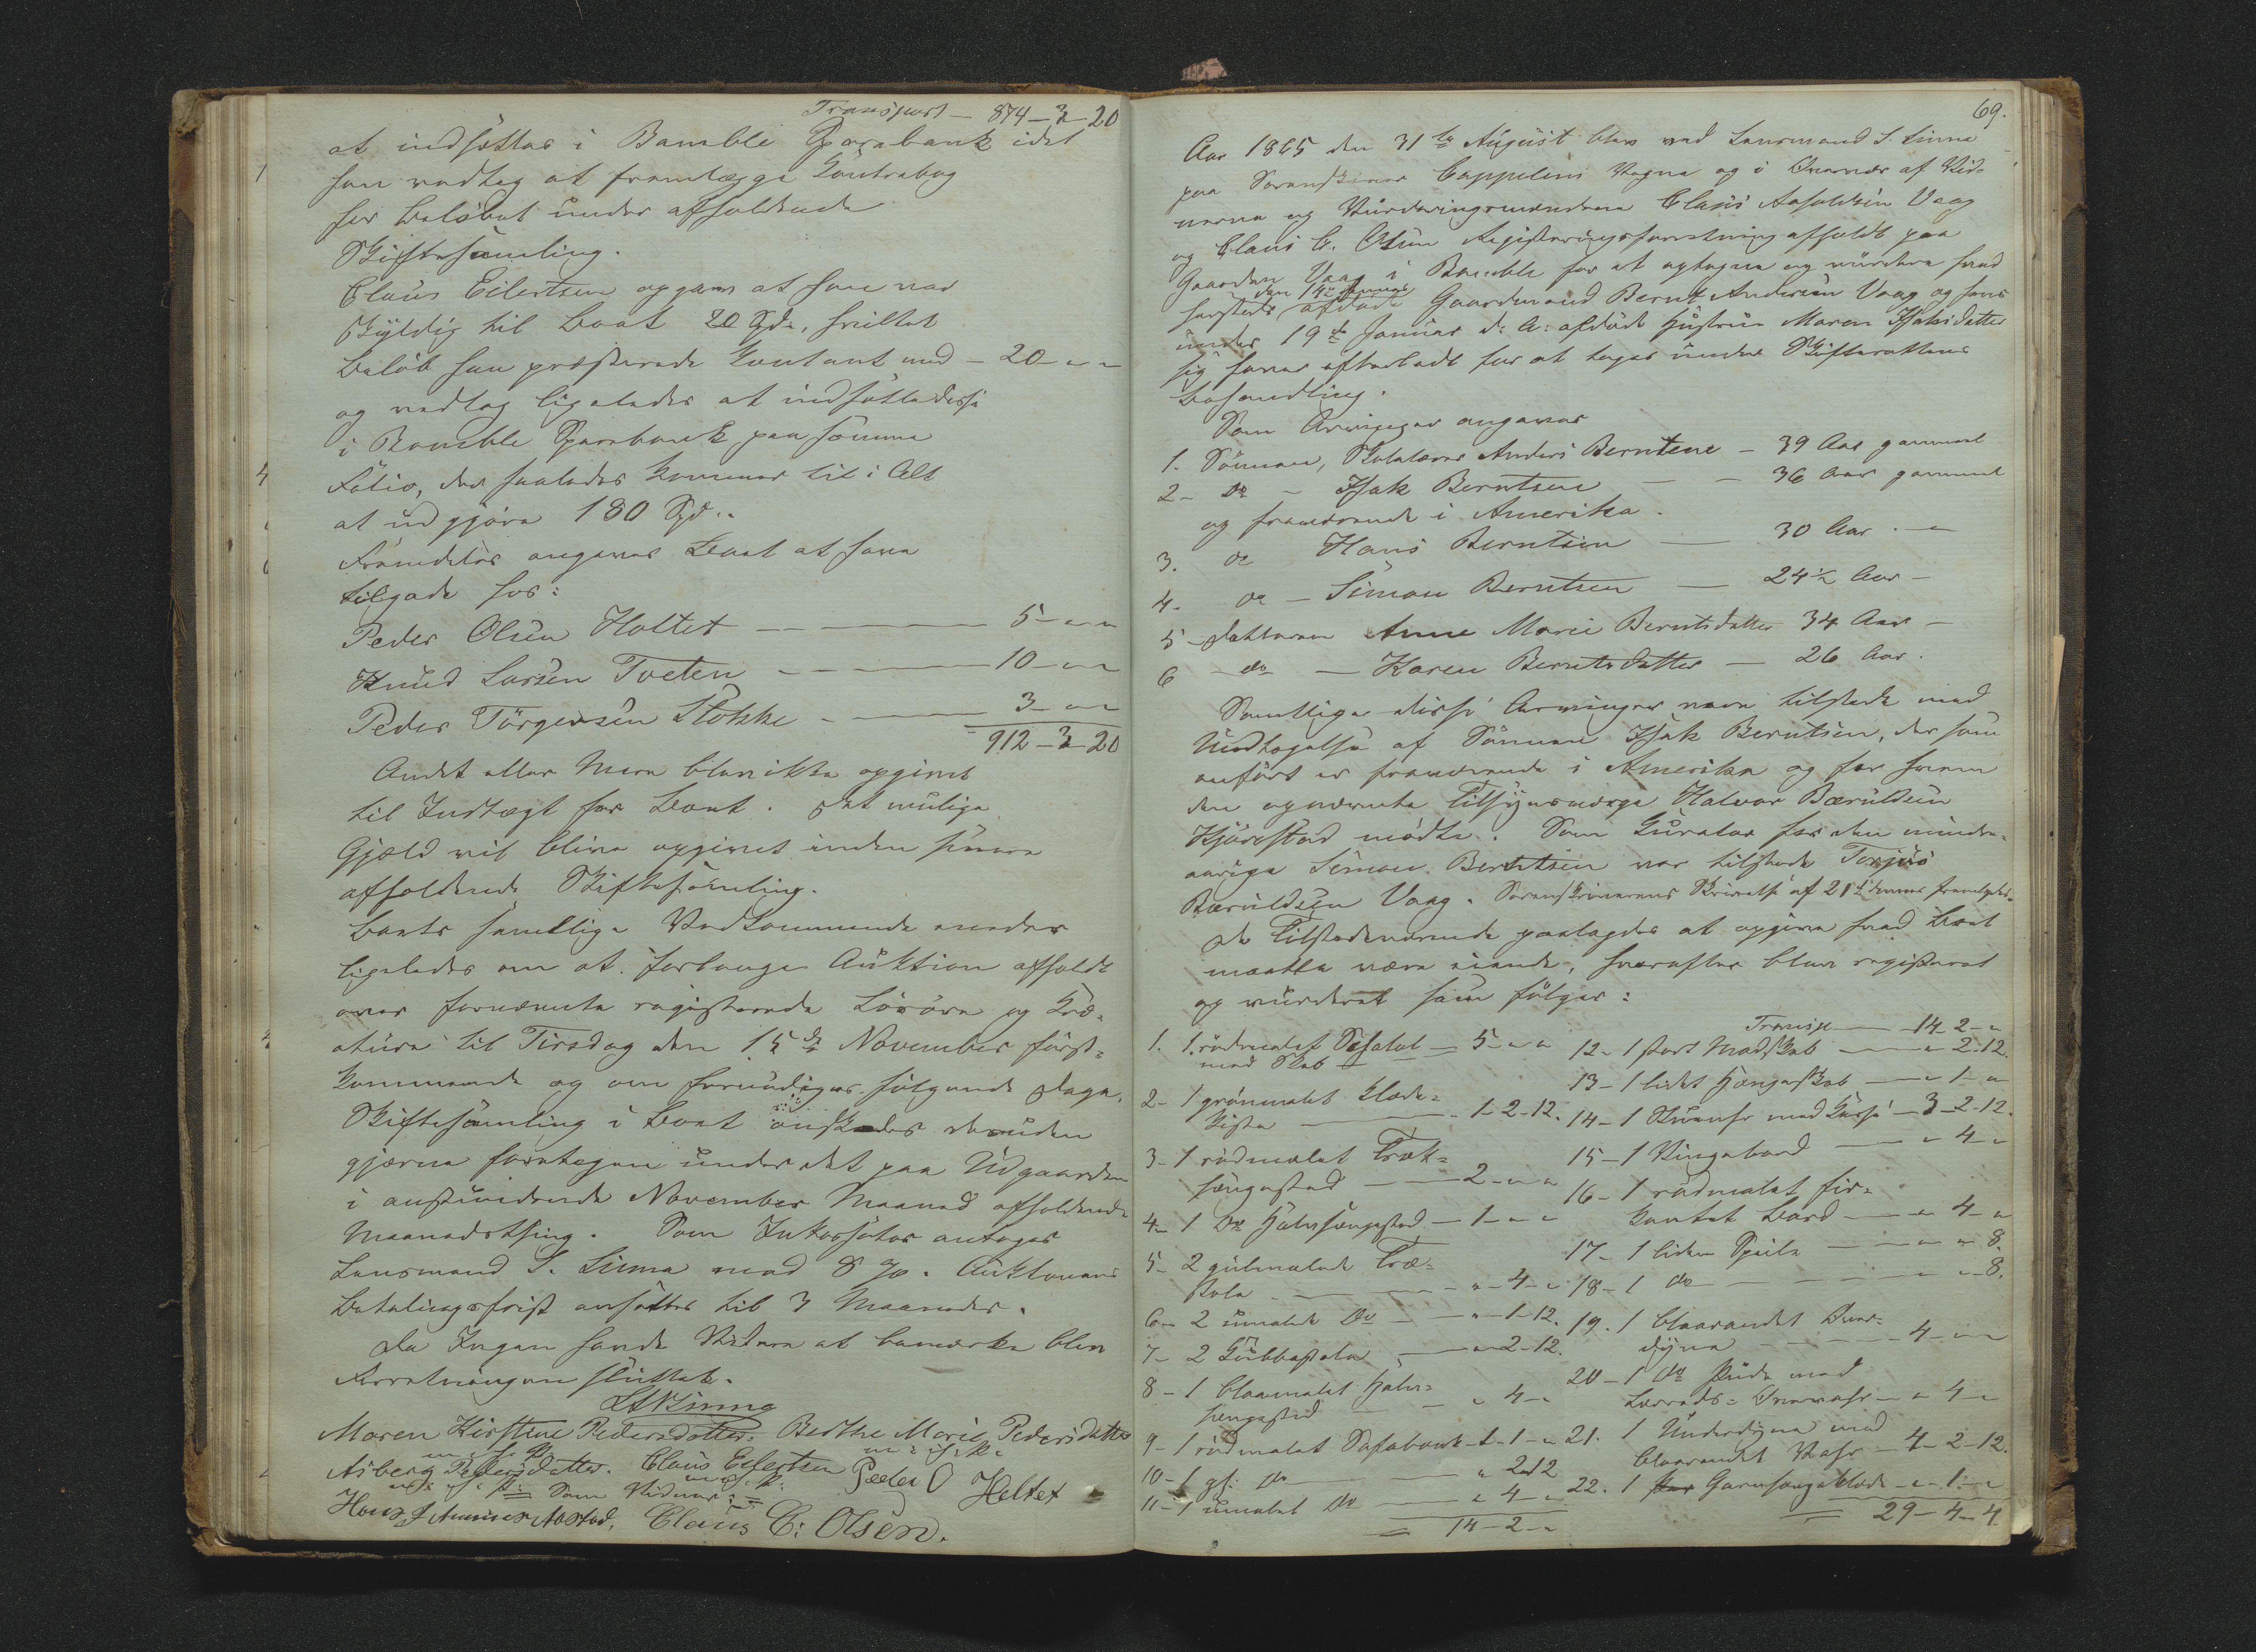 Transport — 874-3-20
at indsættes i Bamble Sparebank idet
han vedtog at fremlægge Contrabog
for Beløbet under afholdende
Skiftesamling.
Claus Eilertsen opgav at han var
skyldig til Boet 20 Spd., hvilket
Beløb han præsterede Contant med — 20 - " - "
og vedtog ligeledes at indsætte disse
i Bamble Sparebank paa samme
Folio, der saaledes kommer til i Alt
at udgjøre 180 Spd..
Fremdeles angaves Boet at have
tilgode hos:
Peder Olsen Holtet — 5 - " - "
Knud Larsen Tveten — 10 - " - "
Peder Törgersen Stokke — 3 - " - "
912-3-20
Andet eller Mere blev ikke opgivet
til Indtægt for Boet. Det mulige
Gjæld vil blive opgivet inden
afholdende Skiftesamling.
Boets samtlige Vedkommende
ligeledes om at forlange Auktion afholdt
over fornævnte registerede Løsøre og Kre-
aturer til Tirsdag den 15de November först-
kommende og om fornödiges fölgende Dage.
Skiftesamling i Boet önskedes desuden
gjerne foretagen under det paa Udgaarden
i anstundende November Maaned afholdende
Maanedsthing. Som Inkassator antoges
Lensmand S. Linna mod 8 %. Auktionens
Betalingsfrist ansættes til 3 Maaneder.
Da Ingen havde Videre at bemærke blev
Forretningen sluttet.
Maren Kirstine Pedersdatter. Berthe Marie Pedersdatter
m. i. h. P. m. i. h. P.
Asberg Pedersdatter. Claus Eilertsen Peder O Heltet
m. i. h. P. Som Vidner:
Hans Aastad. Claus C: Olsen.
69.
Aar 1865 den 31te August blev ved Lensmand S. Linna
paa Sorenskriver Cappelens Vegne og i Overvær af Vid-
nerne og Vurderingsmændene Claus Asoldsen Vaag
og Claus C. Olsen Registeringsforretning afholdt paa
Gaarden Vaag i Bamble for at optegne og vurdere hvad
hersteds den 14de dennes afdöde Gaardmand Bernt Andersen Vaag og hans
under 19de Januar d: A: afdöde Hustrue Maren Isaksdatter
sig haver efterladt for at tages under Skifterettens
Behandling.
Som Arvinger angaves
1. Sönnen, Skolelærer Anders Berntsen — 39 Aar gammel
2 - Do - Isak Berntsen — — 36 Aar gammel
og fraværende i Amerika.
3. Do Hans Berntsen — 30 Aar. -
4 - Do - Simon Berntsen — 24½ Aar -
5 - Datteren Anne Marie Berntsdatter 34 Aar -
6 - Do - Karen Berntsdatter — 26 Aar.
Samtlige disse Arvinger vare tilstede med
Undtagelse af Sönnen Isak Berntsen, der som
anført er fraværende i Amerika og for hvem
den opnævnte Tilsynsværge Halvor Bæruldsen
Hjörestad mödte. Som Curator for den minder-
aarige Simon Berntsen var tilstede Torjus
Bæruldsen Vaag. Sorenskriverens Skrivelse af 21de dennes fremlagdes.
De Tilstedeværende paalagdes at opgive hvad Boet
maatte være eiende, hvorefter blev registeret
og vurderet som fölger:
1. 1 rödmalet Schatol med Skab — 5 - " - "
2 - 1 grönmalet Klæde-
kiste — 1-2-12.
3 - 1 rödmalet Træk-
sengested — 2 - " - "
4 - 1 Do Halvsengested — 1 - " - "
5 - 2 gulmalede Træ-
stole — " - 4 - "
6 - 2 umalede Do — " - 1-12.
7 - 2 Gubbestole — " - 2-12.
8 - 1 blaamalet Halv-
sengested — " 4 - "
9 - 1 rödmalet Sofabænk - 1 - 1 - "
10 - 1 gl: Do — " 2-12
11 - 1 umalet Do — " 4 - "
14 - 2 - "
Transp — 14-2 - "
12 - 1 stort Madskab — " 2-12.
13 - 1 lidet Hængeskab — " 1 - "
14 - 1 Stueuhr med Kasse — 3-2-12.
15 - 1 Vingebord — " 4 - "
16 - 1 rödmalet fir-
kantet Bord — " 4 - "
17 - 1 liden Speile — " - " 8.
18 - 1 do — " - " 8.
19. 1 blaarandet Over-
dyne — 4 - " - "
20 - 1 Do Pude med
Lærreds- Overvahr — " 4 - "
21. 1 Underdyne med
blaarandet Vahr — 4-2-12.
22. 1 Garnsengeklæde — " 1 - "
29-4-4